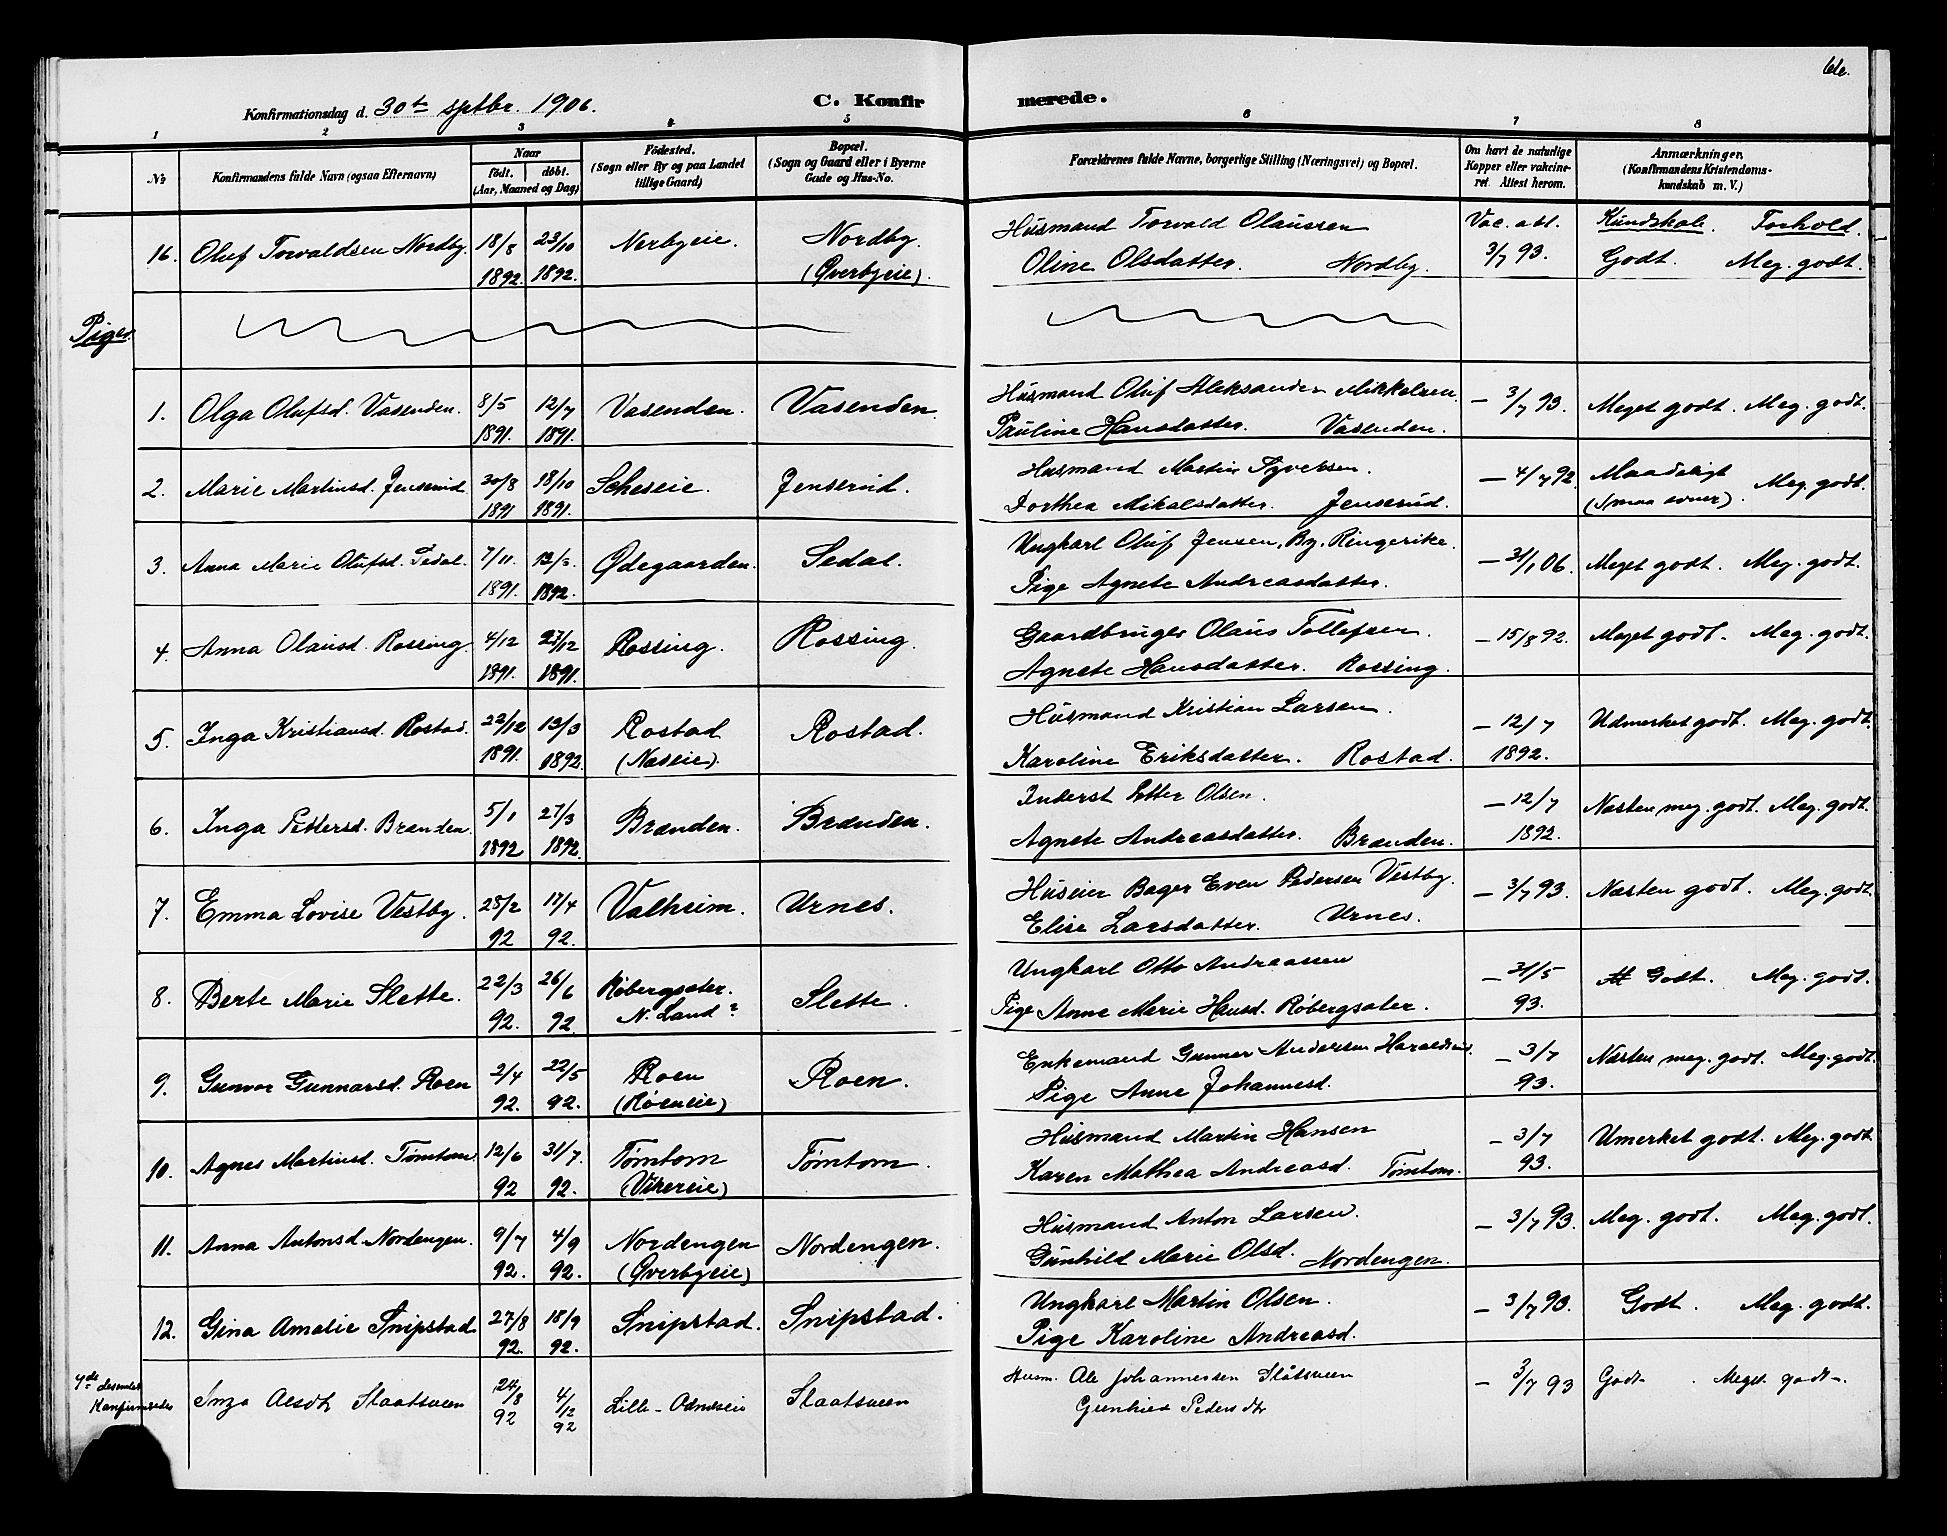 66.
Konfirmationsdag d. 30te sptbr. 1906. C. Konfirmerede.
1 2 3 4 5 6 7 8
No
Konfirmandens fulde Navn (ogsaa Efternavn)
Naar født. døbt. (Aar, Maaned og Dag)
Fødested. (Sogn eller By og paa Landet tillige Gaard)
Bopæl. (Sogn og Gaard eller i Byerne Gade og Hus-No.
Forældrenes fulde Navne, borgerlige Stilling (Næringsvei) og Bopæl.
Om havt de naturlige Kopper eller vakcineret. Attest herom.
Anmærkninger. (Konfirmandens Kristendomskundskab m. V.)
16. Oluf Torvaldsen Nordby. 18/8 23/10 Nerbyeie. Nordby. Husmand Torvald Olaussen Vac. att. Kundskab. Forhold.
1892. 1892. (Øverbyeie). Oline Olsdatter. Nordby. 3/7 93. Godt. Meg. godt.
Piger
1. Olga Olufsd. Vasenden. 8/5 12/7 Vasenden. Vasenden. Husmand Oluf Aleksander Mikkelsen. — 3/7 93. Meget godt. Meg. godt.
1891. 1891. Pauline Hansdatter. Vasenden.
2. Marie Martinsd. Jenserud 30/8 18/10 Scheseie. Jenserud. Husmand Martin Syversen. — 4/7 92. Maadeligt Meg. godt.
1891 1891. Dorthea Mikalsdatter. Jenserud. (Smaa evner).
3. Anna Marie Olufsd. Sedal. 7/11. 13/3. Ødegaarden. Sedal. Ungkarl Oluf Jensen, By. Ringerike. — 31/1 06. Meget godt. Meg. godt.
1891. 1892. Pige Agnete Andreasdatter.
4. Anna Olausd. Rossing 4/12 27/12 Rossing. Rossing. Gaardbruger Olaus Tollefsen. — 15/8 92. Meget godt. Meg. godt.
1891. 1891. Agnete Hansdatter. Rossing.
5. Inga Kristiansd. Rostad. 22/12 13/3 Rostad Rostad. Husmand Kristian Larsen. — 12/7 Udmerket godt. Meg. godt.
1891. 1892. (Næseie). Karoline Eriksdatter. Rostad. 1892.
6. Inga Pettersd. Brænden. 5/1 27/3 Brænden. Brænden. Inderst Petter Olsen. — 12/7 Næsten meg. godt. Meg. godt.
1892 1892. Agnete Andreasdatter. Brænden. 1892.
7. Emma Lovise Vestby. 28/2 17/4 Valheim. Urnes. Huseier Bager Even Pedersen Vestby. — 3/7 93. Næsten godt. Meg. godt.
92 92. Elise Larsdatter. Urnes.
8. Berte Marie Slette. 22/3 26/6 Røbergsæter. Slette. Ungkarl Otto Andreassen — 31/5 Godt. Meg. godt.
92. 92 N. Land? Pige Anne Marie Hansd. Røbergsæter. 93.
9. Gunvor Gunnarsd. Roen 2/4 22/5 Roen Roen. Enkemand Gunnar Andersen Haraldsrud. — 3/7 Næsten meg. godt. Meg. godt.
92. 92. (Røeneie) Pige Anne Johannesd. 93.
10. Agnes Martinsd. Tømtom. 12/6 31/7. Tømtom Tømtom. Husmand Martin Hansen — 3/7 Umerket godt. Meg. godt.
92 92. (Vikereie) Karen Mathea Andreasd. Tømtom. 93.
11. Anna Antonsd. Nordengen. 9/7 4/9 Nordengen Nordengen. Husmand Anton Larsen. — 3/7 93. Meg. godt. Meg. godt.
92. 92. (Øverbyeie) Gunhild Marie Olsd. Nordengen.
12. Gina Amalie Snipstad 27/8 18/9 Snipstad. Snipstad. Ungkarl Martin Olsen. — 3/7 93. Godt. Meg. godt.
92. 92. Pige Karoline Andreasd.
Inga Alesdtr Slaatsveen 24/8 4/12 Lille-Odneseie Slaatsveen Husm. Ale Johannessen Slåtsveen — 3/7 93 Godt. Meget godt.
92 92 Gunhild Pedersdtr